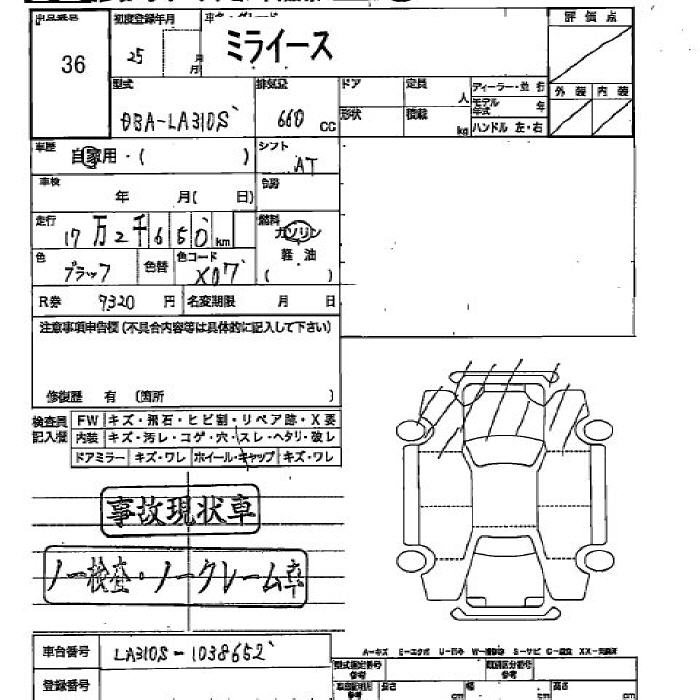 初度登録年月
36
25
月
ミライース
評価点
型式
DBA-LA310S
排気量
660
CC
ドア
形状
定員
人
積載
kg
ディーラー・並行
モデル年式
年
ハンドル 左・右
外装
内装
車歴
自家用・( )
シフト
AT
車検
年 月( 日)
走行
17万2千650km
燃料
ガソリン
軽油
( )
色
ブラック
色替
色コード
X07
R券 9320 円
名変期限 月 日
注意事項申告欄(不具合内容等は具体的に記入して下さい)
修復歴 有 (箇所 )
検査員記入欄
FW キズ・飛石・ヒビ割・リペア跡・X要
内装 キズ・汚レ・コゲ・穴・スレ・ヘタリ・破レ
ドアミラー キズ・ワレ ホイール・キャップ キズ・ワレ
事故現状車
ノー検査・ノークレーム車
車台番号
LA310S-1038652
登録番号
長さ
cm
幅
cm
高さ
cm